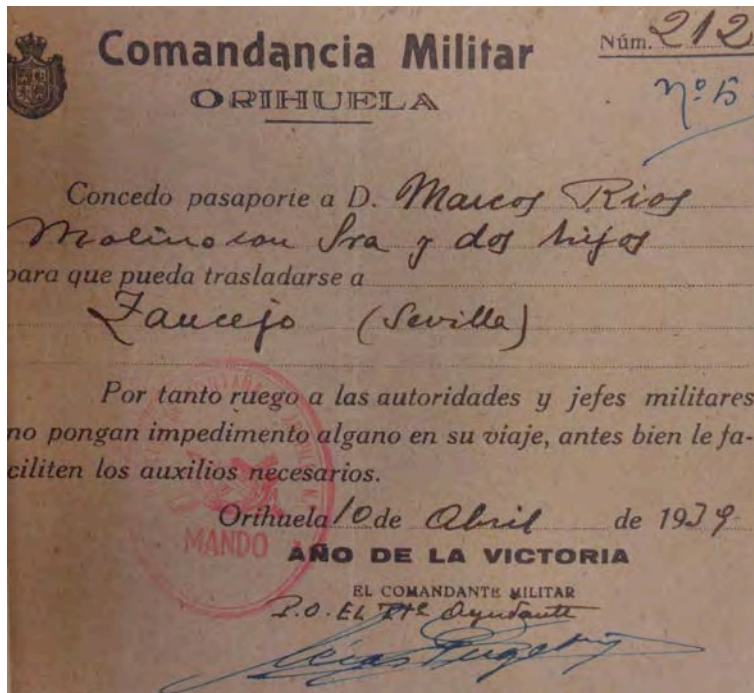 Comandancia Militar
ORIHUELA
Núm. 212
nº 5
Concedo pasaporte a D. Marcos Rios
Molino con Sra y dos hijos
para que pueda trasladarse a
Zaucejo (Sevilla)
Por tanto ruego a las autoridades y jefes militares
no pongan impedimento algano en su viaje, antes bien le fa-
ciliten los auxilios necesarios.
Orihuela 10 de Abril de 1939
MANDO
AÑO DE LA VICTORIA
EL COMANDANTE MILITAR
P.O. EL Ayudante